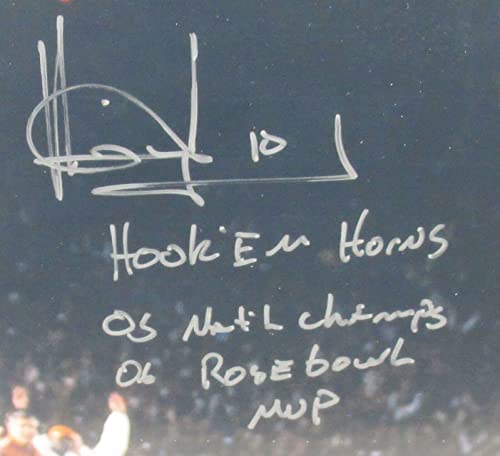 10
Hook'Em Horns
05 Nat'L champs
06 Rosebowl
MVP